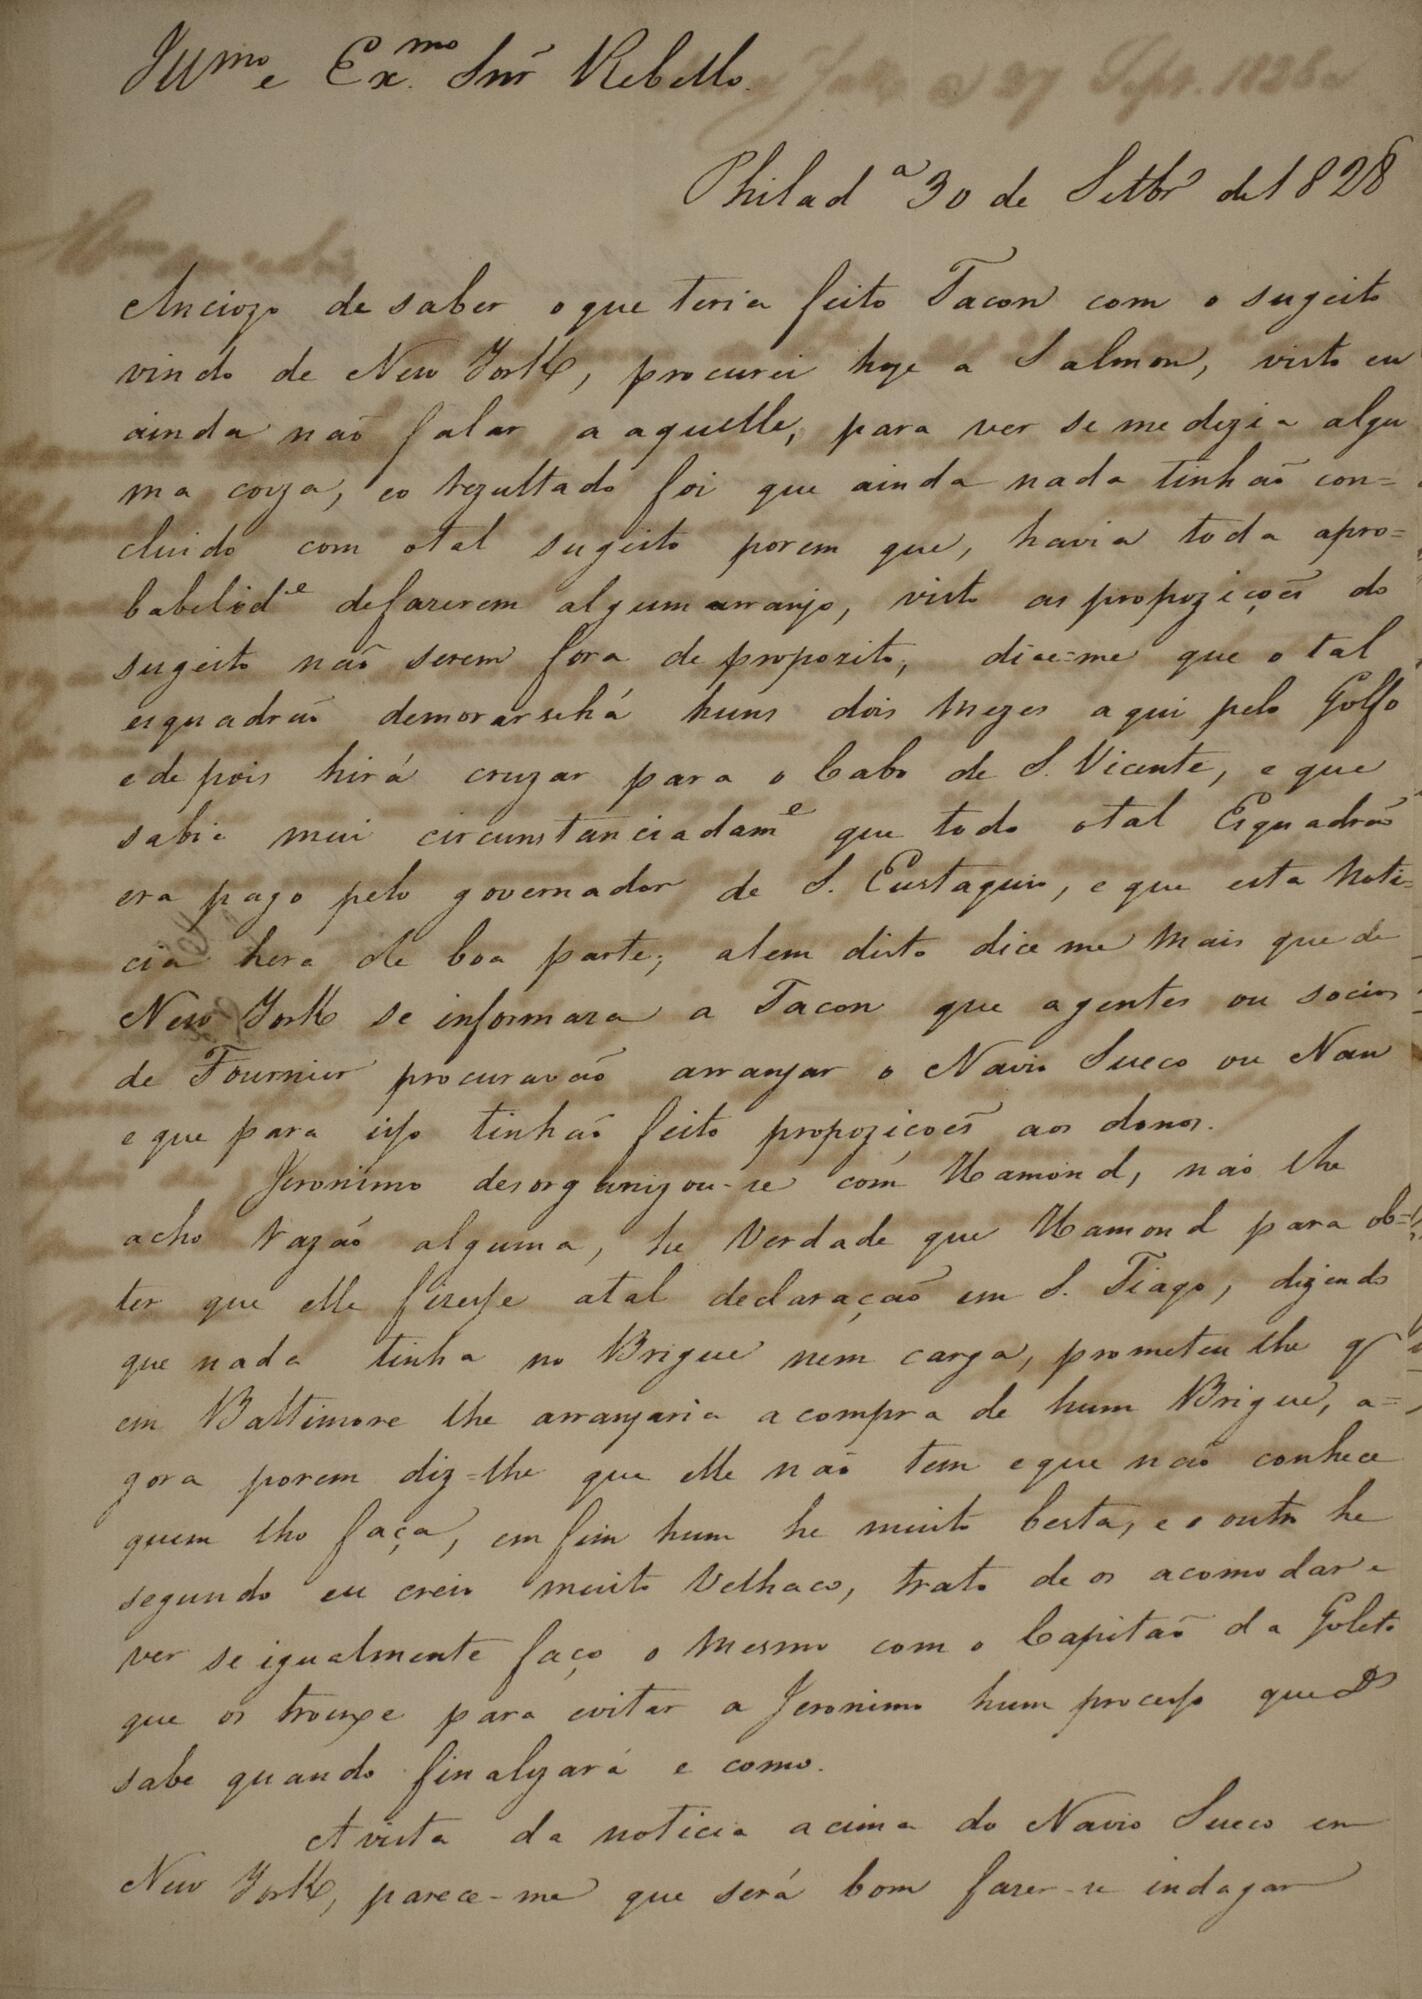 Illmo e Exmo. Snr Rebello.
Philada 30 de Setbro de 1828
Anciozo de saber o que teria feito Tacon com o sugeito
vindo de New York, procurei hoje a Salmon, visto eu
ainda não falar a aquelle, para ver se me dizia algu
ma coiza, e o rezultado foi que ainda nada tinhão con=
cluido com o tal sugeito porem que, havia toda a pro=
babelide de fazerem algum arranjo, visto as propoziçoes do
sugeito não serem fora de proposito, dice=me que o tal
esquadrão demorarsehá huns dois mezes aqui pelo Golfo
e depois hirá cruzar para o Cabo de S. Vicente, e que
sabia mui circunstanciadame que todo o tal Esquadrão
era pago pelo governador de S. Eustaquio, e que esta noti=
cia hera de boa parte; alem disto dice me mais que de
New York se informara a Tacon que agentes ou socios
de Fournier procuravão arranjar o Navio Sueco ou Nau
e que para isso tinhão feito propoziçoes aos donos.
Jeronimo desorganizou-se com Hamond, não lhe
acho razão alguma, he verdade que Hamond para ob=
ter que elle fizesse a tal declaração em S. Tiago, dizendo
que nada tinha no Brigue nem carga, prometeu lhe q
em Baltimore lhe arranjaria a compra de hum Brigue, a=
gora porem diz=lhe que elle não tem e que não conhece
quem lho faça, em fim hum he muito besta, e o outro he
segundo eu creio muito velhaco, trato de os acomodar e
ver se igualmente faço o mesmo com o Capitão da Goleta
que os trouxe para evitar a Jeronimo hum processo que Ds
sabe quando finalizará e como.
A vista da noticia acima do Navio Sueco em
New York, parece-me que será bom fazer-se indagar